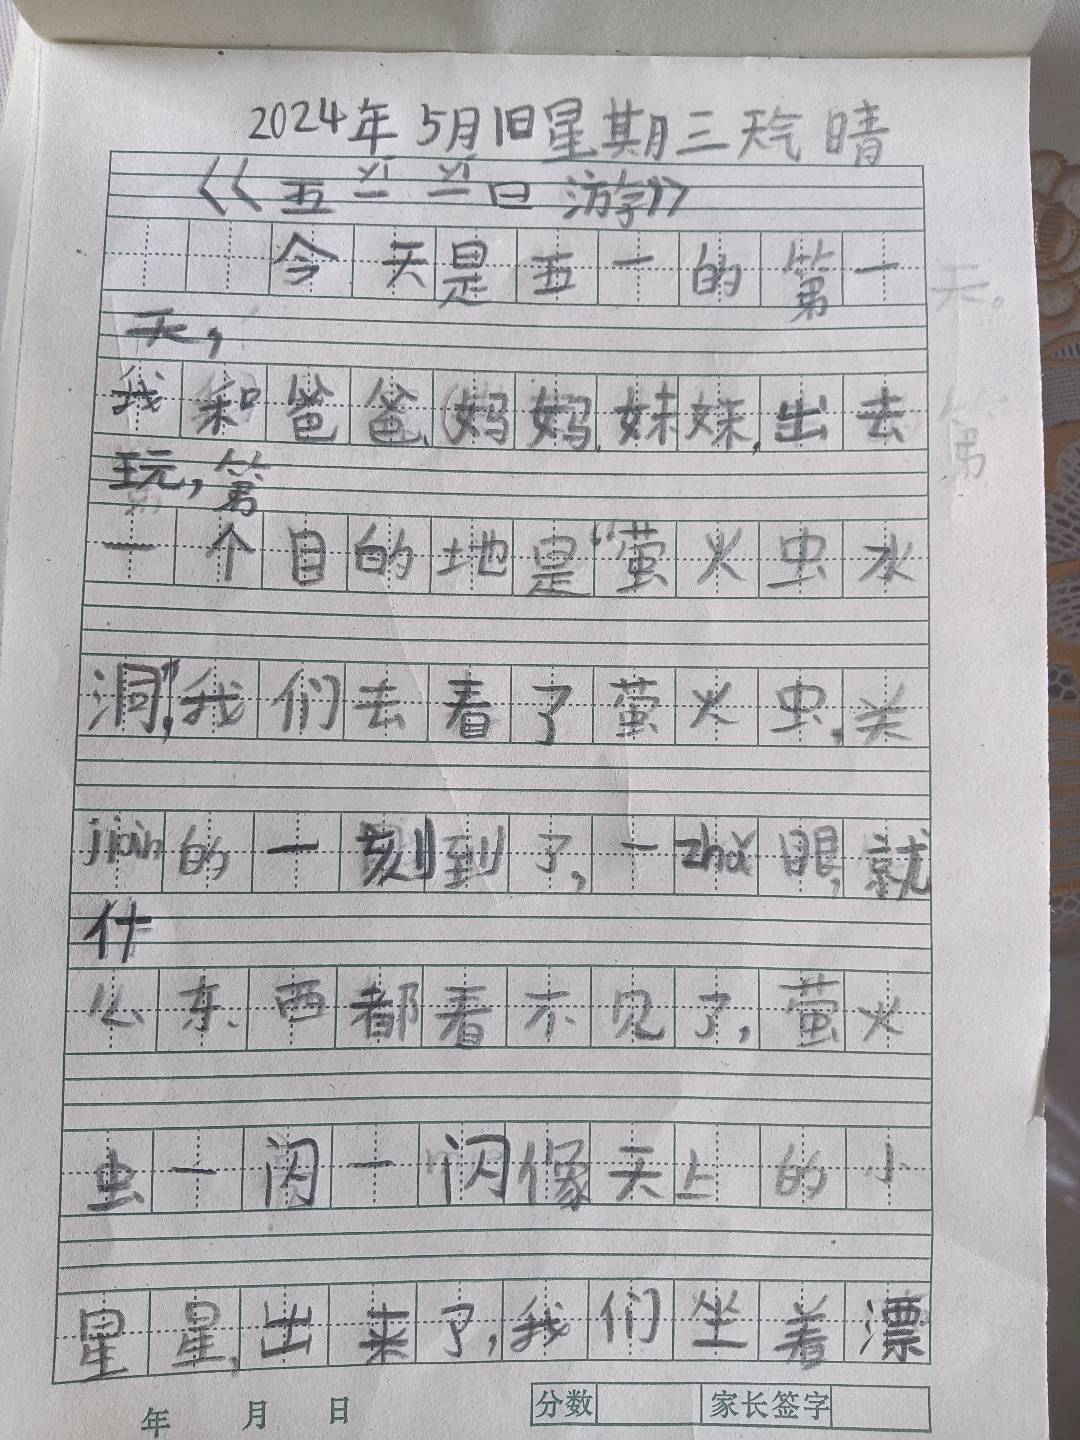 2024年5月1日星期三天气晴
《五一一日游》
yī yī
今天是五一的第一
天。
天，
我和爸爸、妈妈、妹妹,出去
第
玩，第
一个目的地是“萤火虫水
洞”,我们去看了萤火虫,关
jiàn的一刻到了,一zhǎ眼,就
什
么东西都看不见了,萤火
虫一闪一闪像天上的小
星星,出来了,我们坐着漂
年 月 日 分数 家长签字